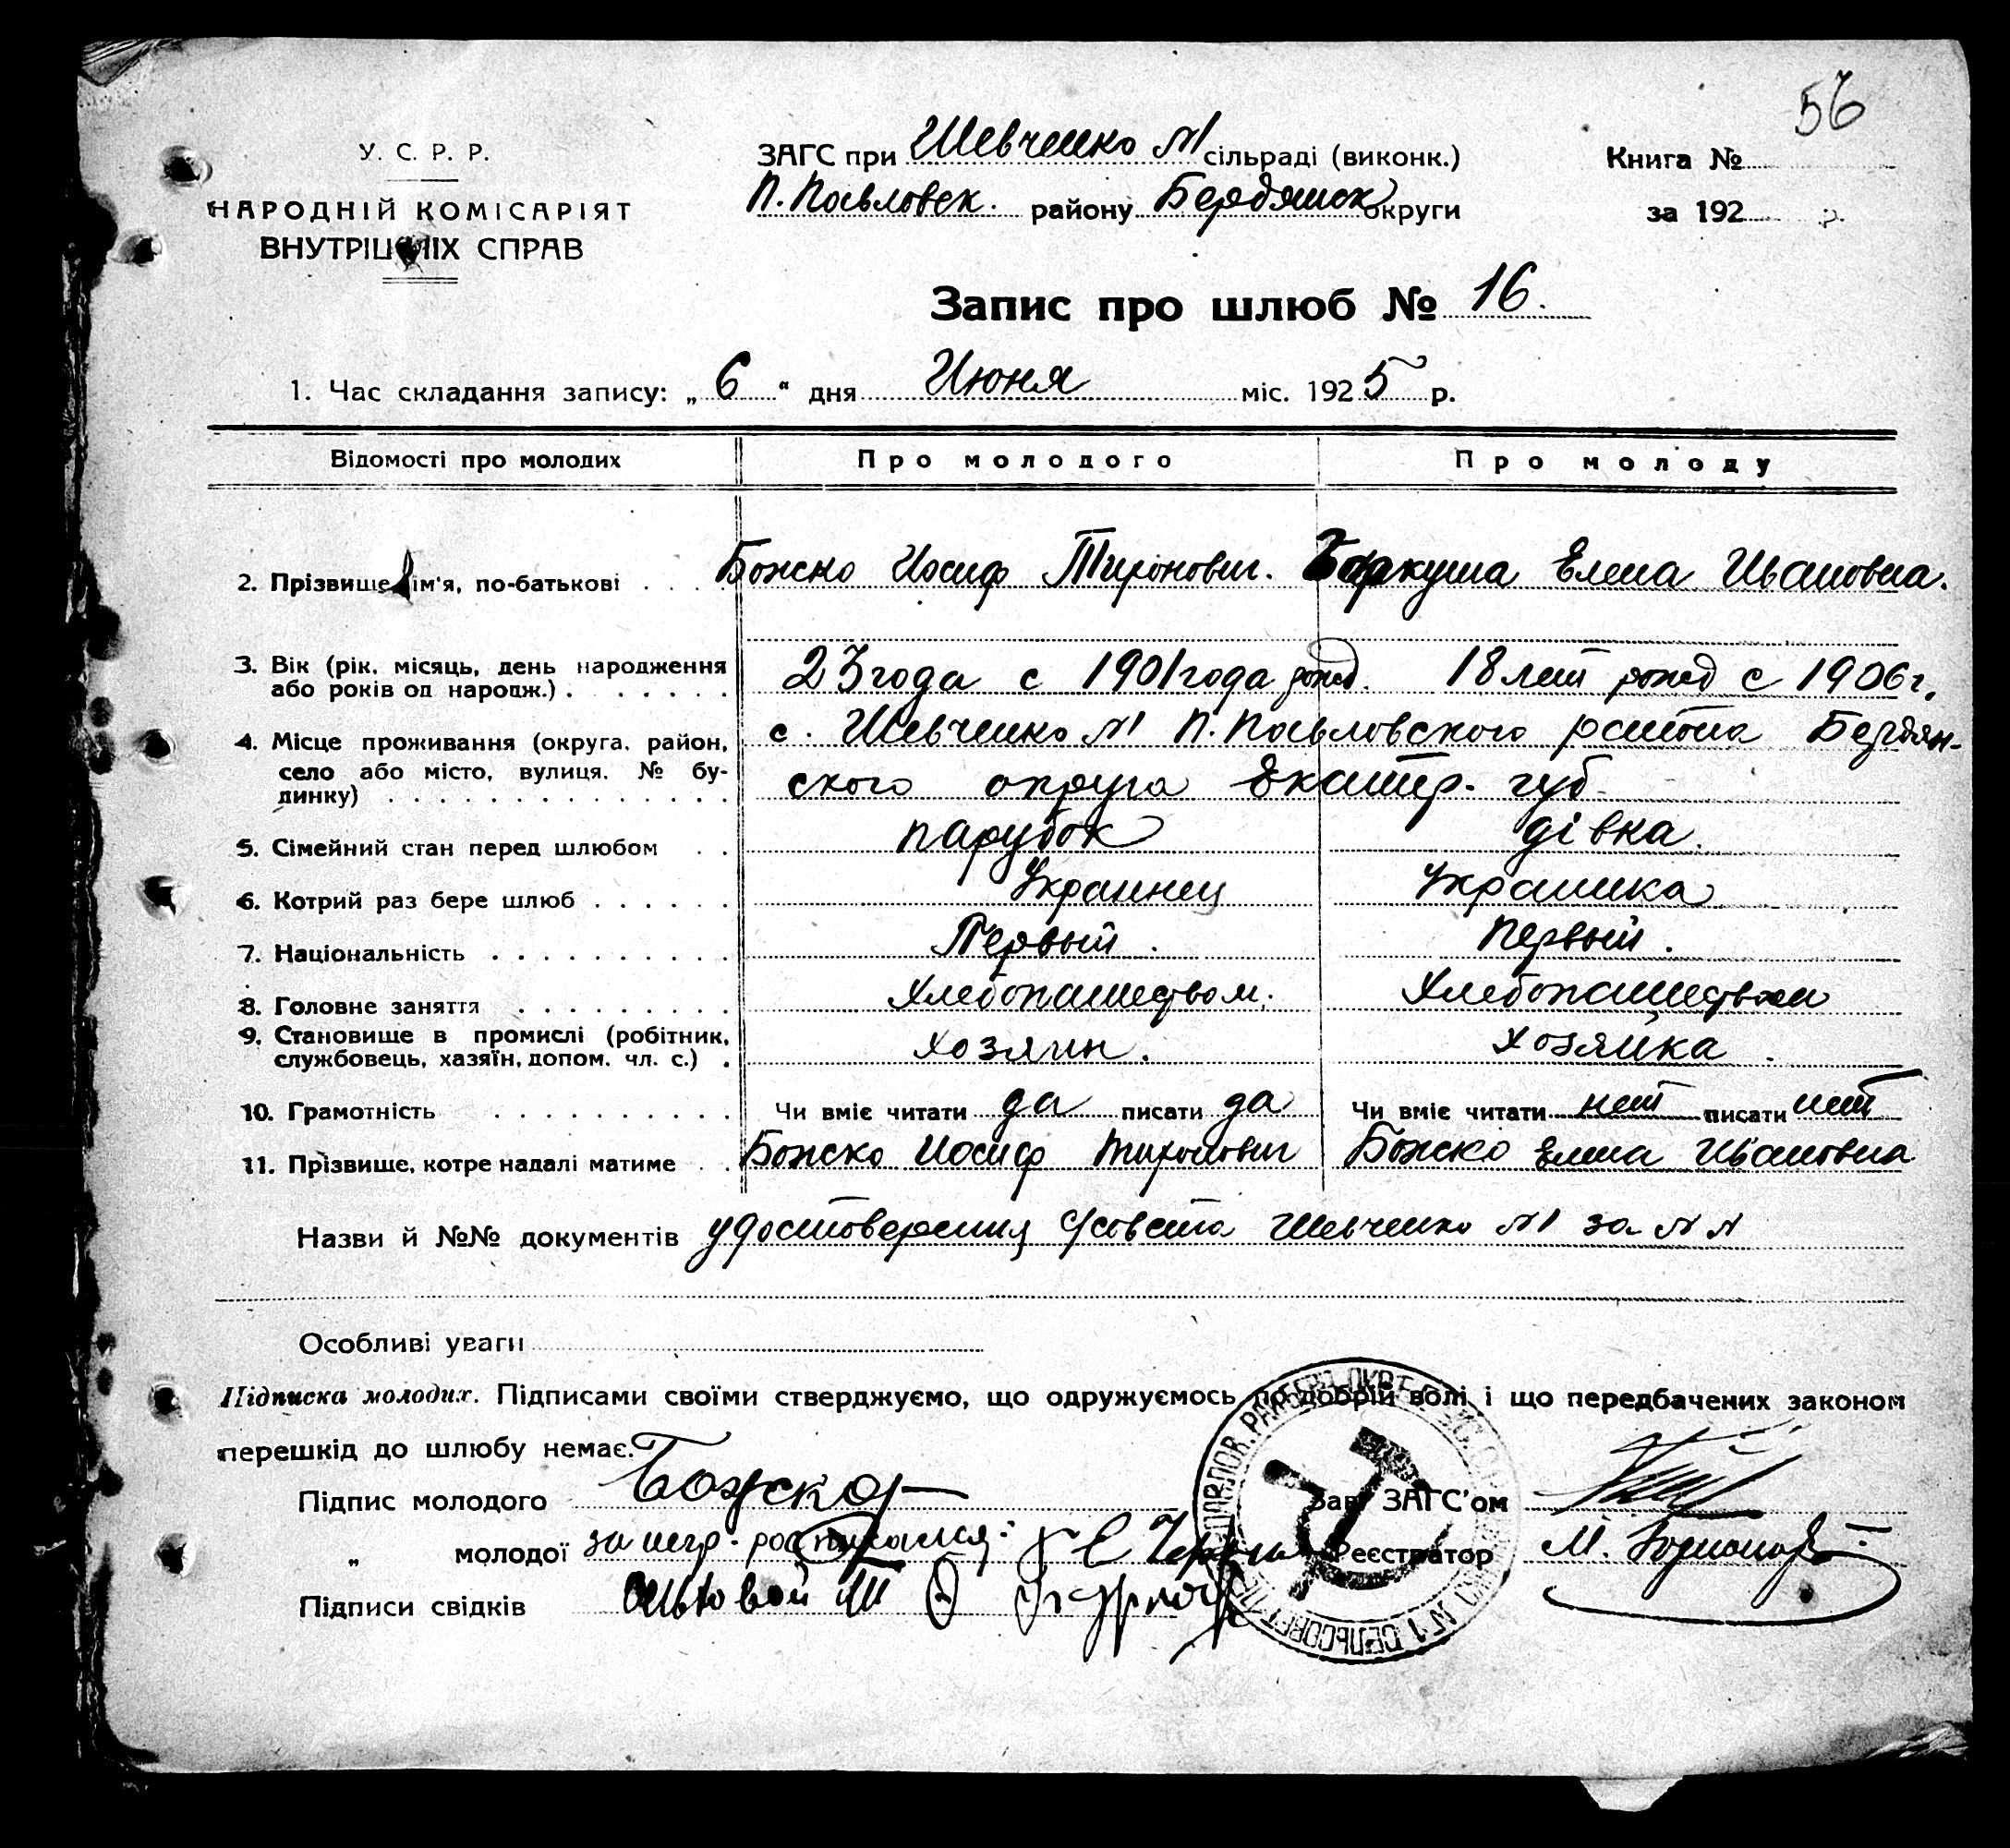 56
У. С. Р. Р.
НАРОДНІЙ КОМІСАРІЯТ
ВНУТРІШНІХ СПРАВ
ЗАГС при Шевченко №1 сільраді (виконк.)
П. Павловск. району Бердянск округи
Книга №
за 192 р.
Запис про шлюб № 16.
1. Час складання запису: „ 6 “ дня Июня міс. 1925 р.
Відомості про молодих Про молодого Про молоду
2. Прізвище, ім'я, по-батькові Божко Иосиф Тихонович. Баркуша Елена Ивановна.
3. Вік (рік, місяць, день народження 23 года с 1901 года рожд. 18 лет рожд с 1906 г.
або років од народж.)
4. Місце проживання (округа, район, с. Шевченко №1 П. Павловского района Бердян-
село або місто, вулиця, № бу- ского округа Екатер. губ
динку)
5. Сімейний стан перед шлюбом парубок дівка.
6. Котрий раз бере шлюб Украинец Украинка
7. Національність Первый. Первый.
8. Головне заняття Хлебопашеством. Хлебопашеством
9. Становище в промислі (робітник, хозяин. хозяйка.
службовець, хазяїн, допом. чл. с.)
10. Грамотність Чи вміє читати да писати да Чи вміє читати нет писати нет
11. Прізвище, котре надалі матиме Божко Иосиф Тихонович Божко Елена Ивановна
Назви й №№ документів удостоверения с/совета Шевченко №1 за № №
Особливі уваги
Підписка молодих. Підписами своїми стверджуємо, що одружуємось по добрій волі і що передбачених законом
перешкід до шлюбу немає.
Підпис молодого Божко Зав. ЗАГС'ом
„ молодої за негр. росписался Реєстратор М.
Підписи свідків
№1 СЕЛЬСОВЕТ